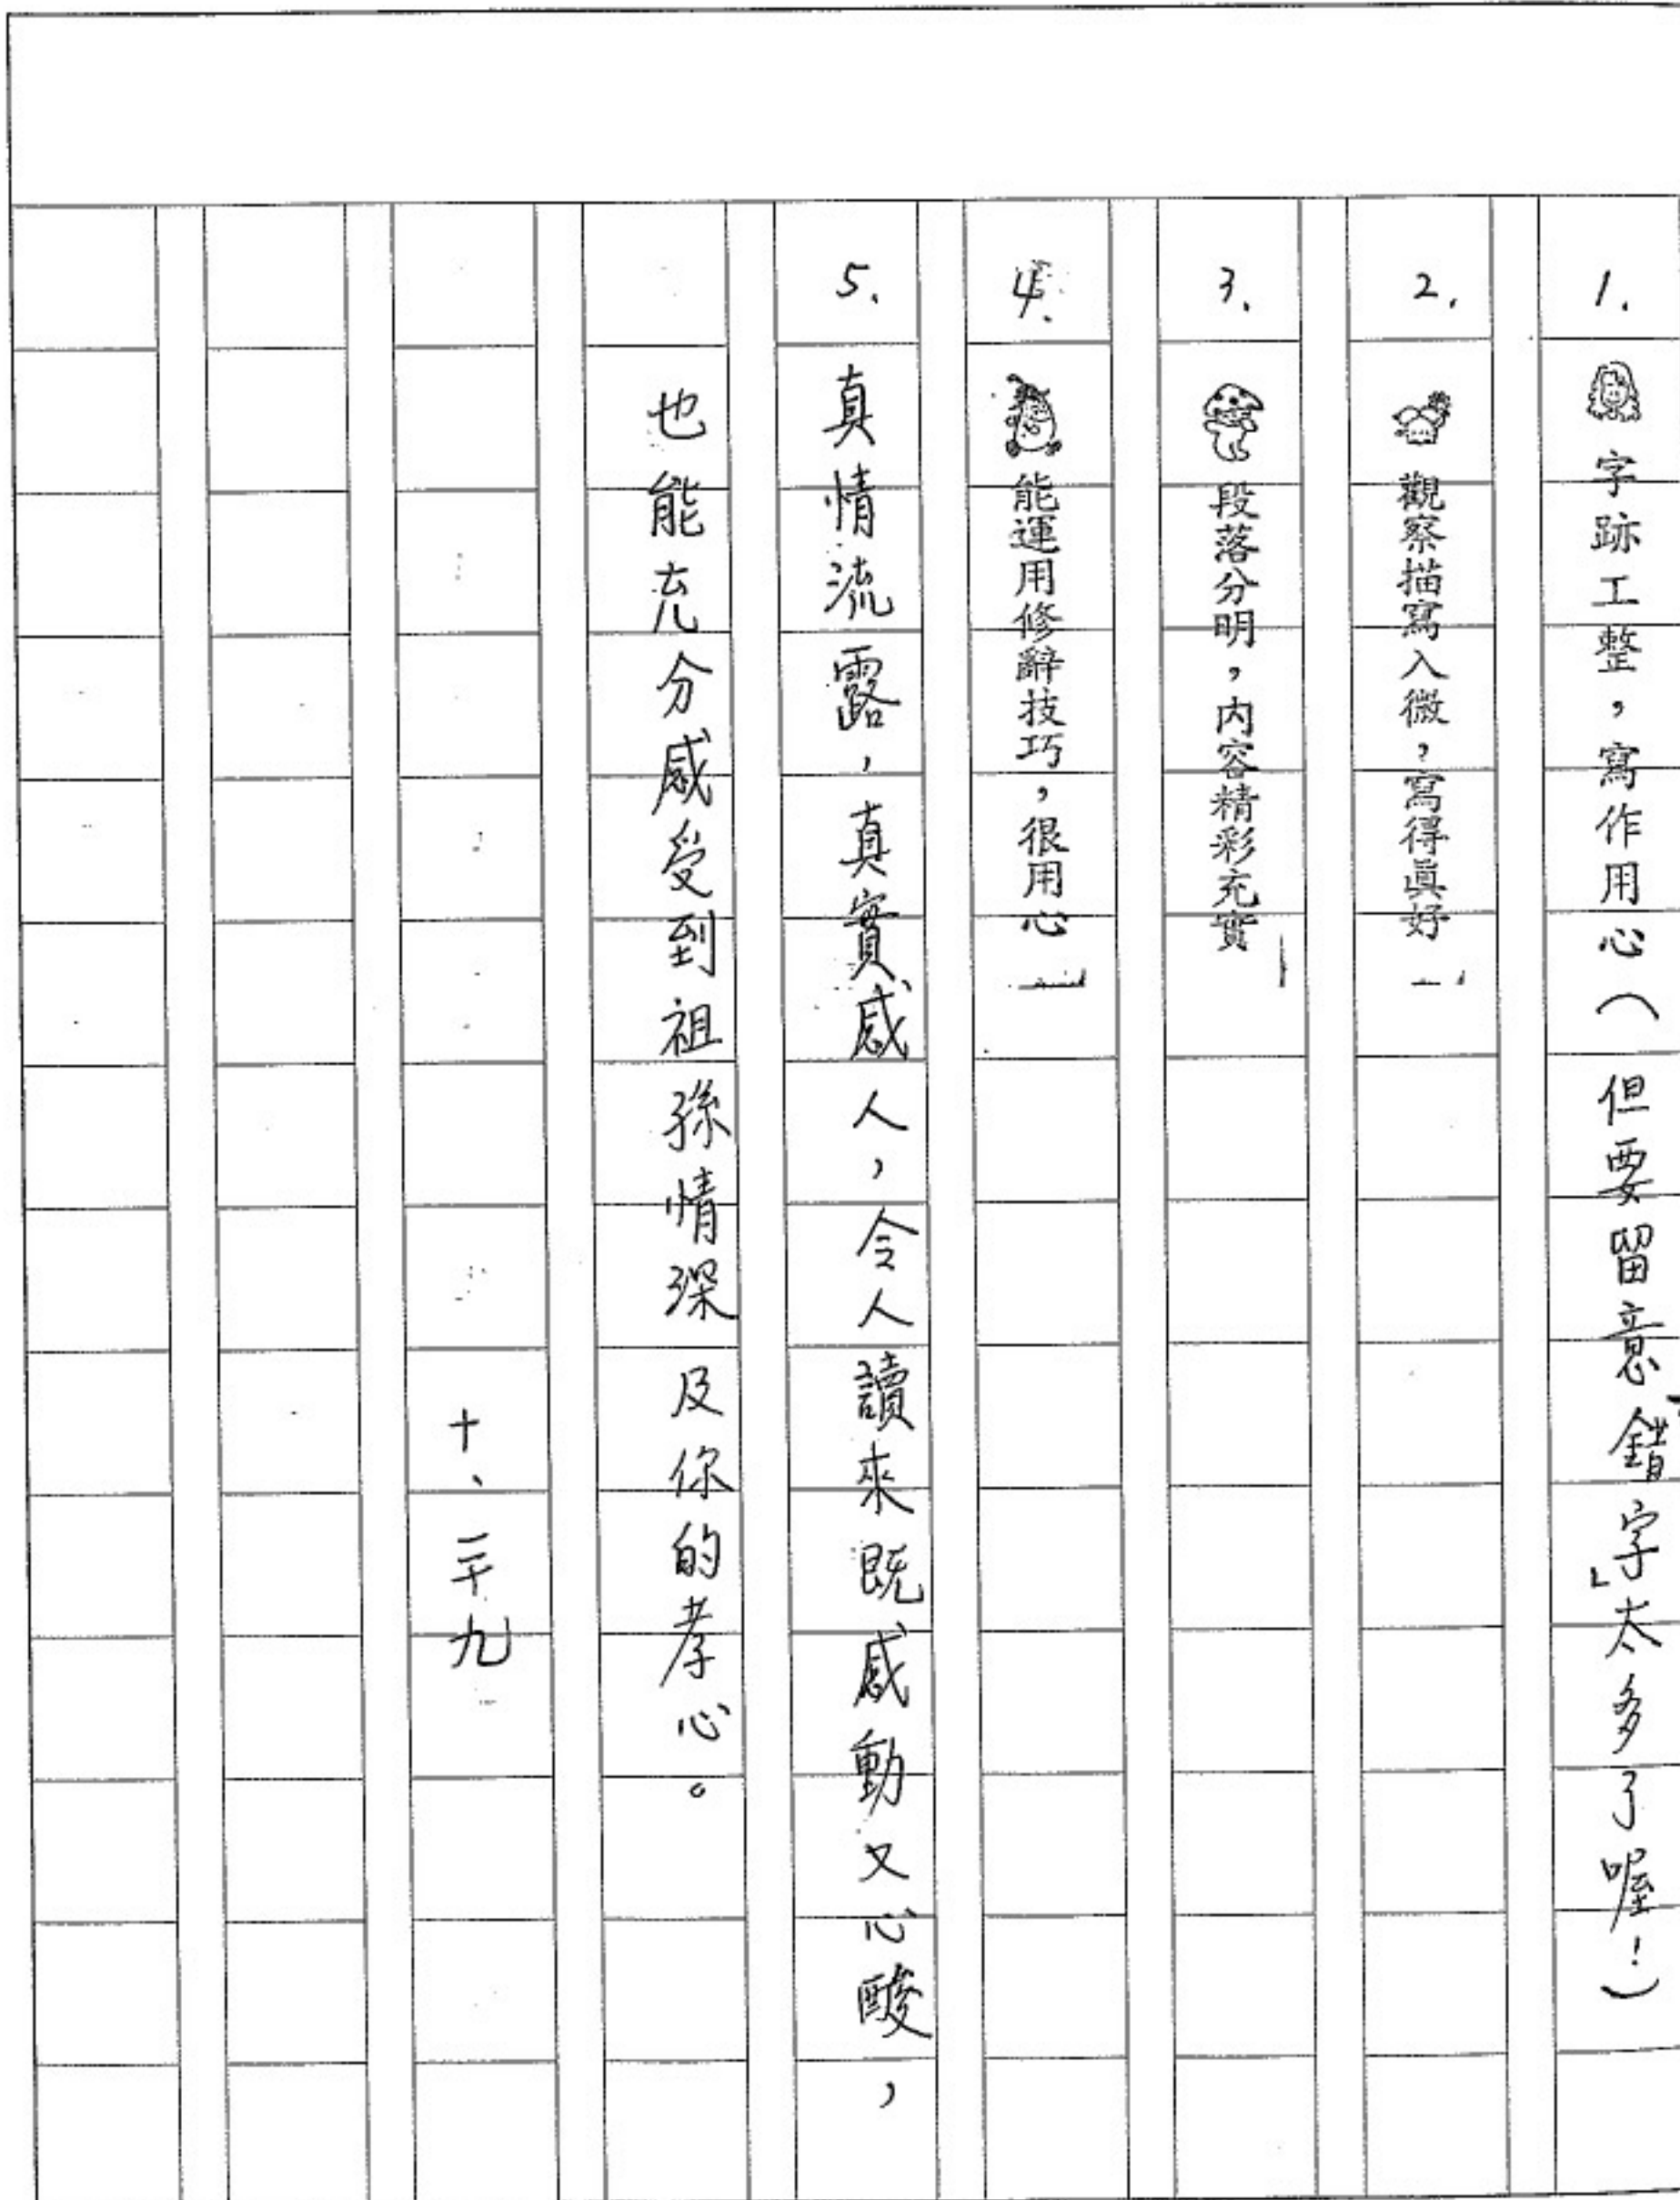 1. 字跡工整，寫作用心（但要留意「錯字」太多了喔！）
2. 觀察描寫入微，寫得真好
3. 段落分明，內容精彩充實
4. 能運用修辭技巧，很用心
5. 真情流露，真實感人，令人讀來既感動又心酸，
也能充分感受到祖孫情深及你的孝心。
十、二十九